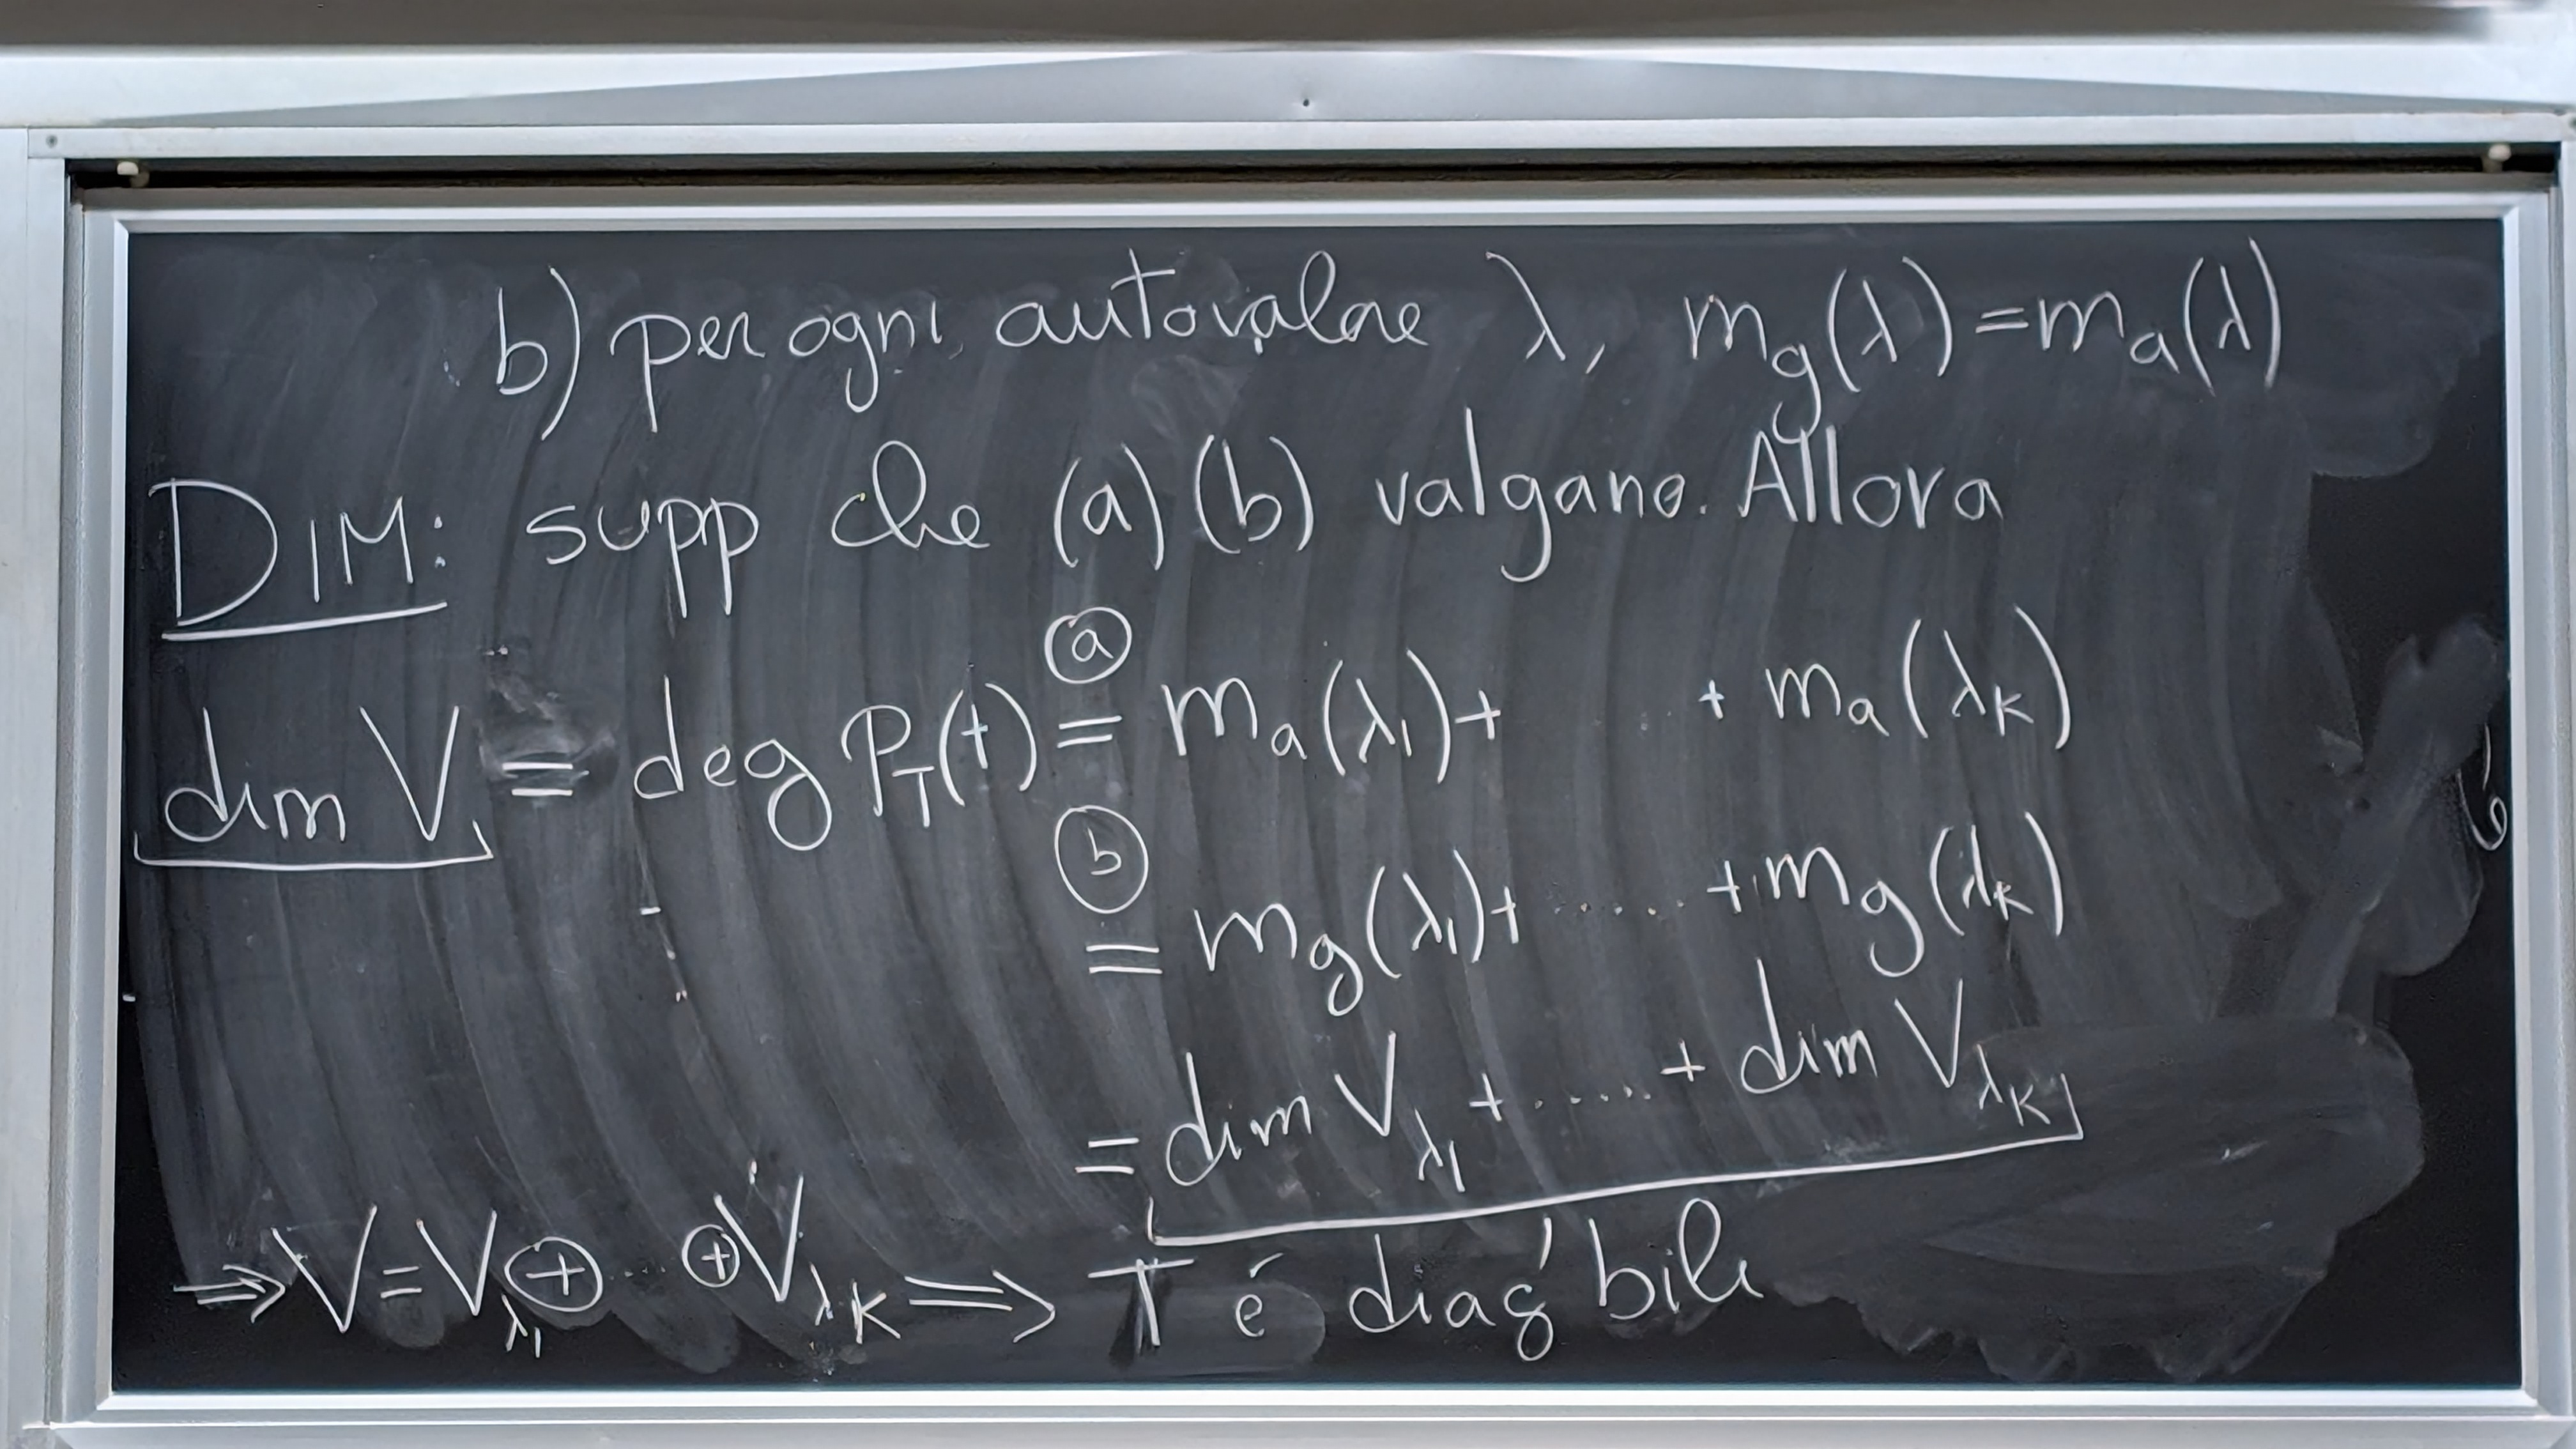 b) per ogni autovalore λ, m_g(λ)=m_a(λ)
DIM: supp che (a) (b) valgano. Allora
dim V = deg P_T(t) =^ⓐ m_a(λ_1)+ + m_a(λ_K)
=^ⓑ m_g(λ_1)+ ..... +m_g(λ_K)
= dim V_λ_1 + ...... + dim V_λ_K
⇒ V = V_λ_1 ⊕ ... ⊕ V_λ_K ⇒ T é diag'bile